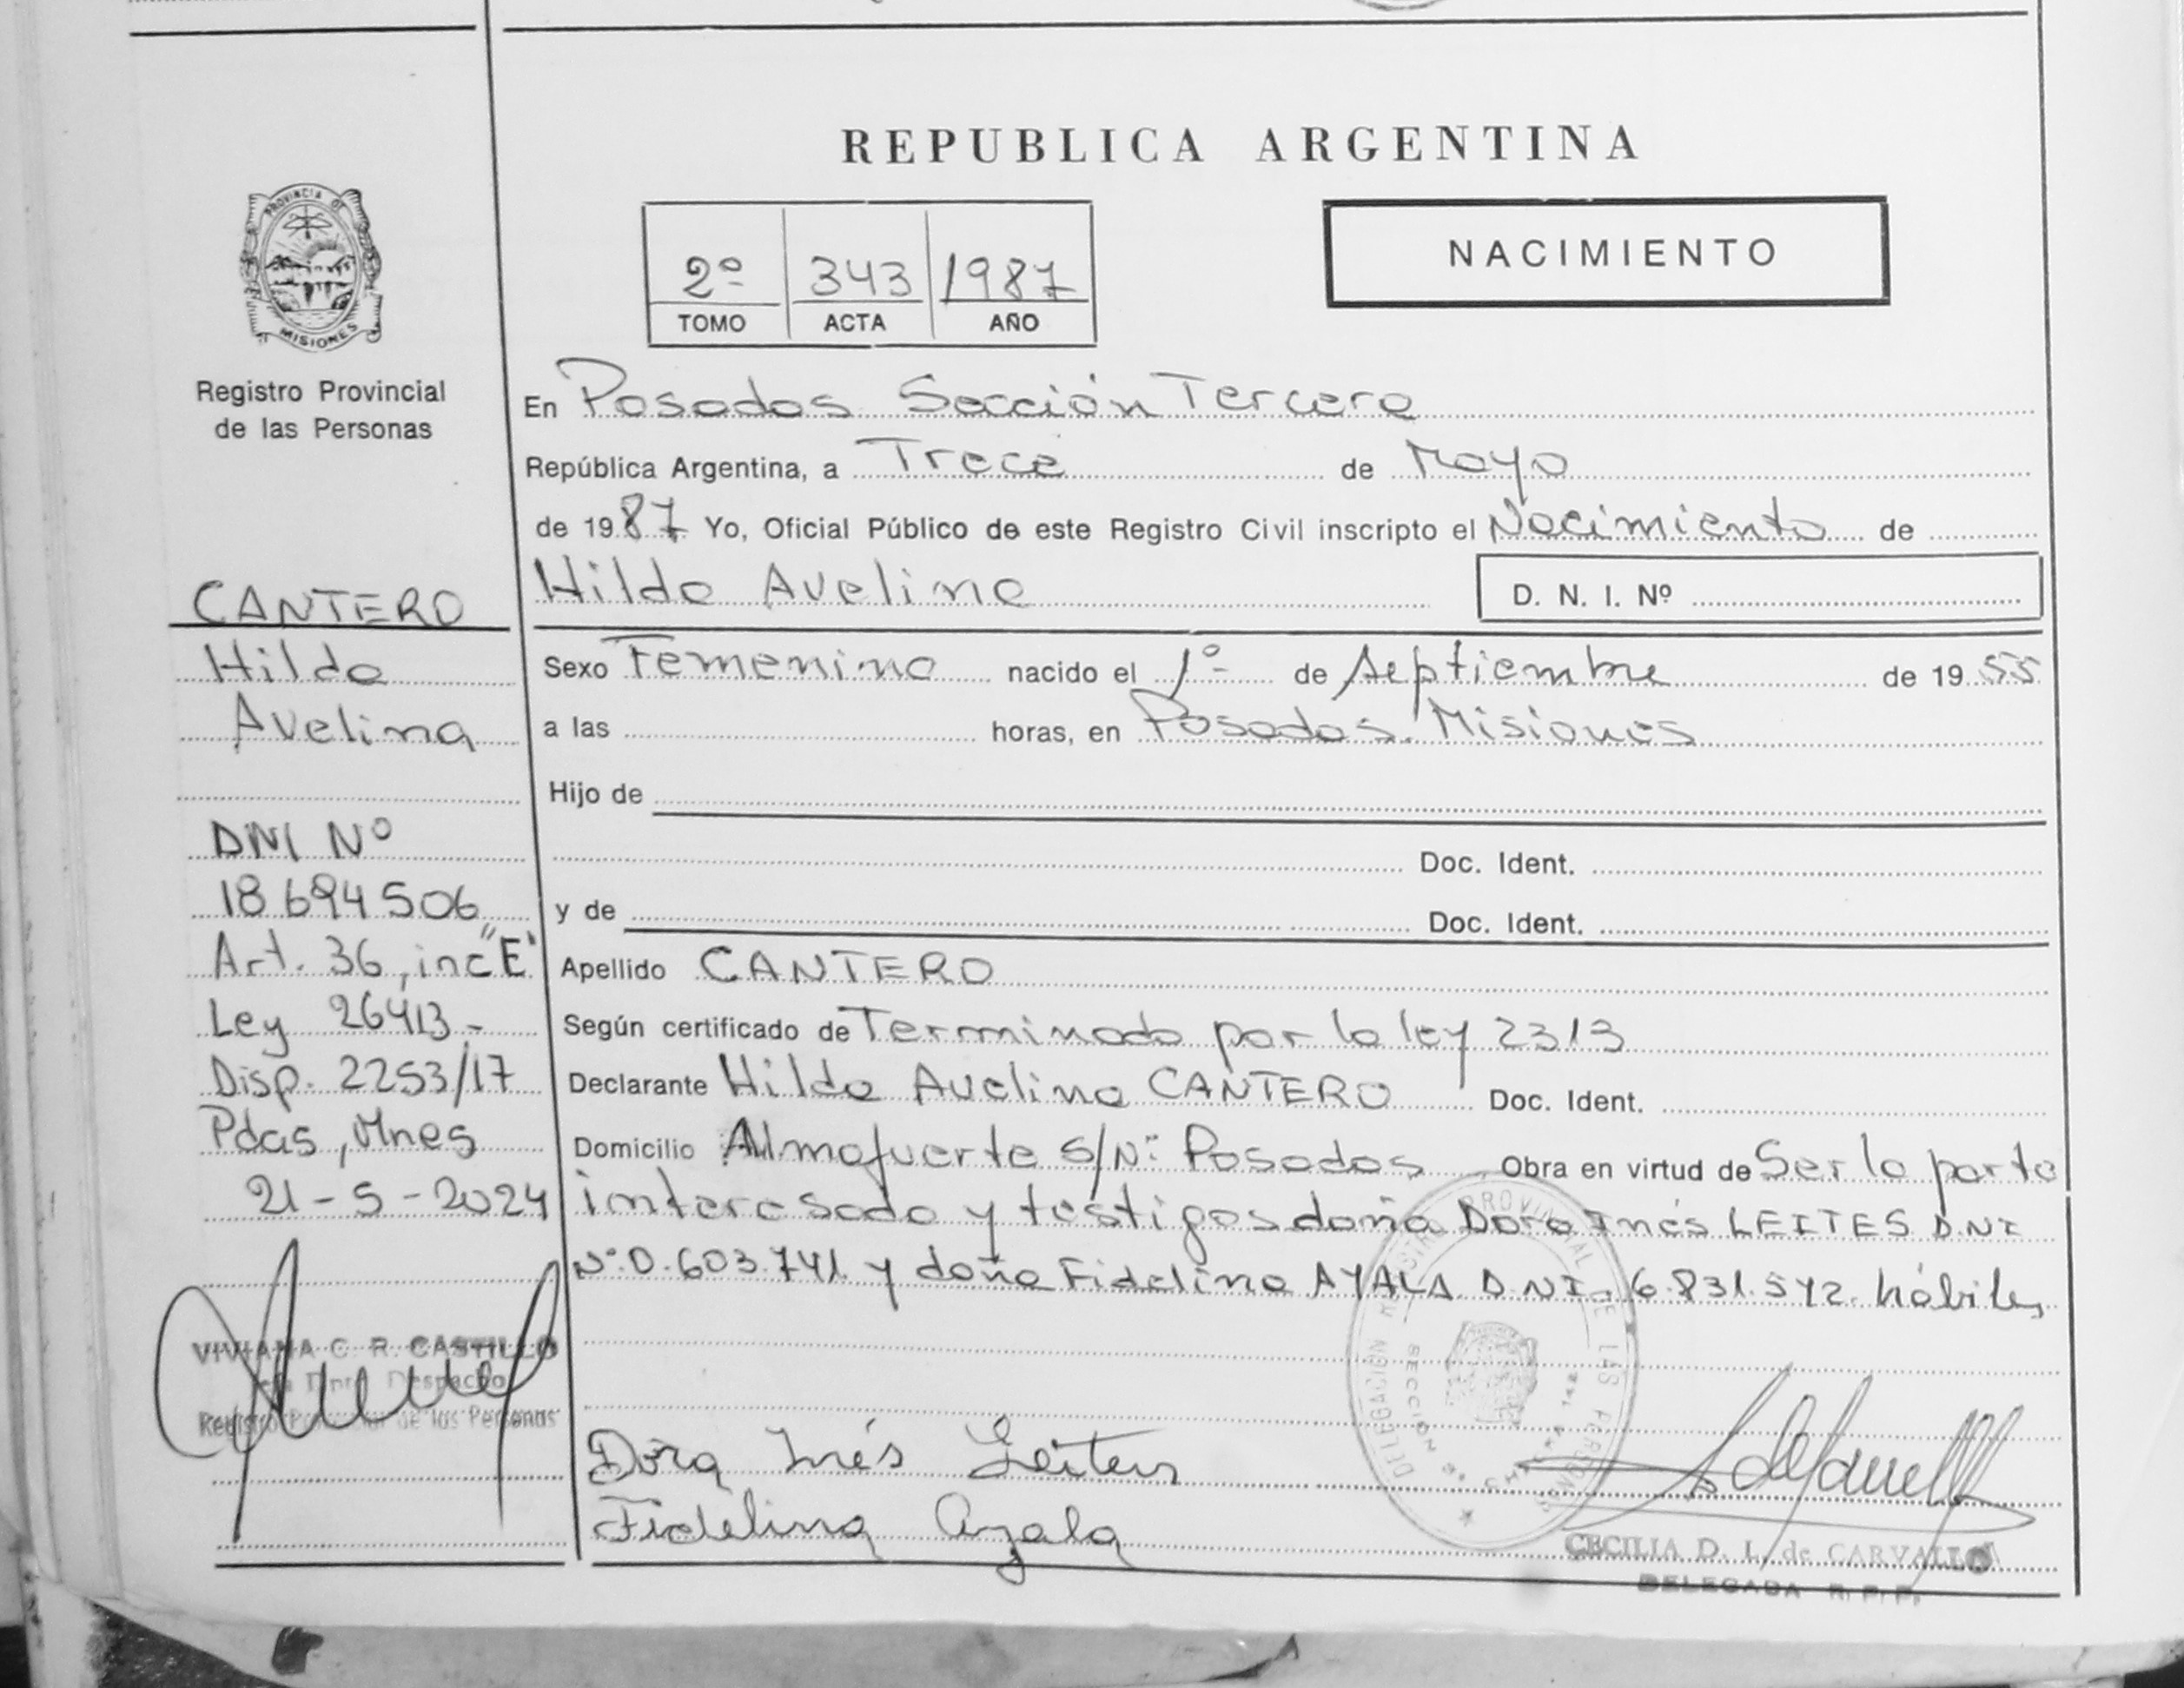 REPUBLICA ARGENTINA
PROVINCIA DE
MISIONES
Registro Provincial
de las Personas
2º 343 1987
TOMO ACTA AÑO
NACIMIENTO
En Posadas Sección Tercera
República Argentina, a Trece de Mayo
de 1987 Yo, Oficial Público de este Registro Civil inscripto el Nacimiento de
Hilda Avelina D. N. I. Nº
Sexo Femenino nacido el 1º de Septiembre de 1955
a las horas, en Posadas. Misiones
Hijo de
Doc. Ident.
y de Doc. Ident.
Apellido CANTERO
Según certificado de Terminado por la ley 2313
Declarante Hilda Avelina CANTERO Doc. Ident.
Domicilio Almafuerte S/Nº Posadas Obra en virtud de Ser la parte
interesada y testigos doña Dora Inés LEITES D.N.I
Nº 0.603.741 y doña Fidelina AYALA D.N.I. 6.831.572. hábiles
Dora Inés Leites
Fidelina Ayala
CECILIA D. I. de CARVALLO
DELEGADA R. P. P.
DELEGACIÓN REGISTRO PROVINCIAL DE LAS PERSONAS
SECCION 3ª CHACRA 142
CANTERO
Hilda
Avelina
DNI Nº
18694506
Art. 36, inc "E"
Ley 26413-
Disp. 2253/17
Pdas, Mnes
21-5-2024
VIVIANA C. R. CASTILLO
Dpto. Despacho
Registro Provincial de las Personas